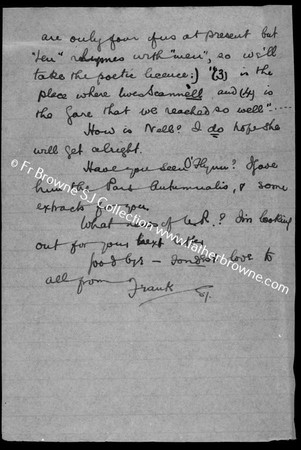 are only four of us at present but
"ten" rhymes with "men", so we'll
take the poetic licence:) "(3) is the
place where we Scannell and (4) is
the Gare that we reached so well"....
How is Nell? I do hope she
will get alright.
Have you seen O'Flynn? I gave
him the Pars Autumnalis, & some
extracts for you.
What news of U.R.? I'm looking
out for your next
Good bye — Fondest love to
all from
Frank SJ.
© Fr Browne SJ Collection www.fatherbrowne.com